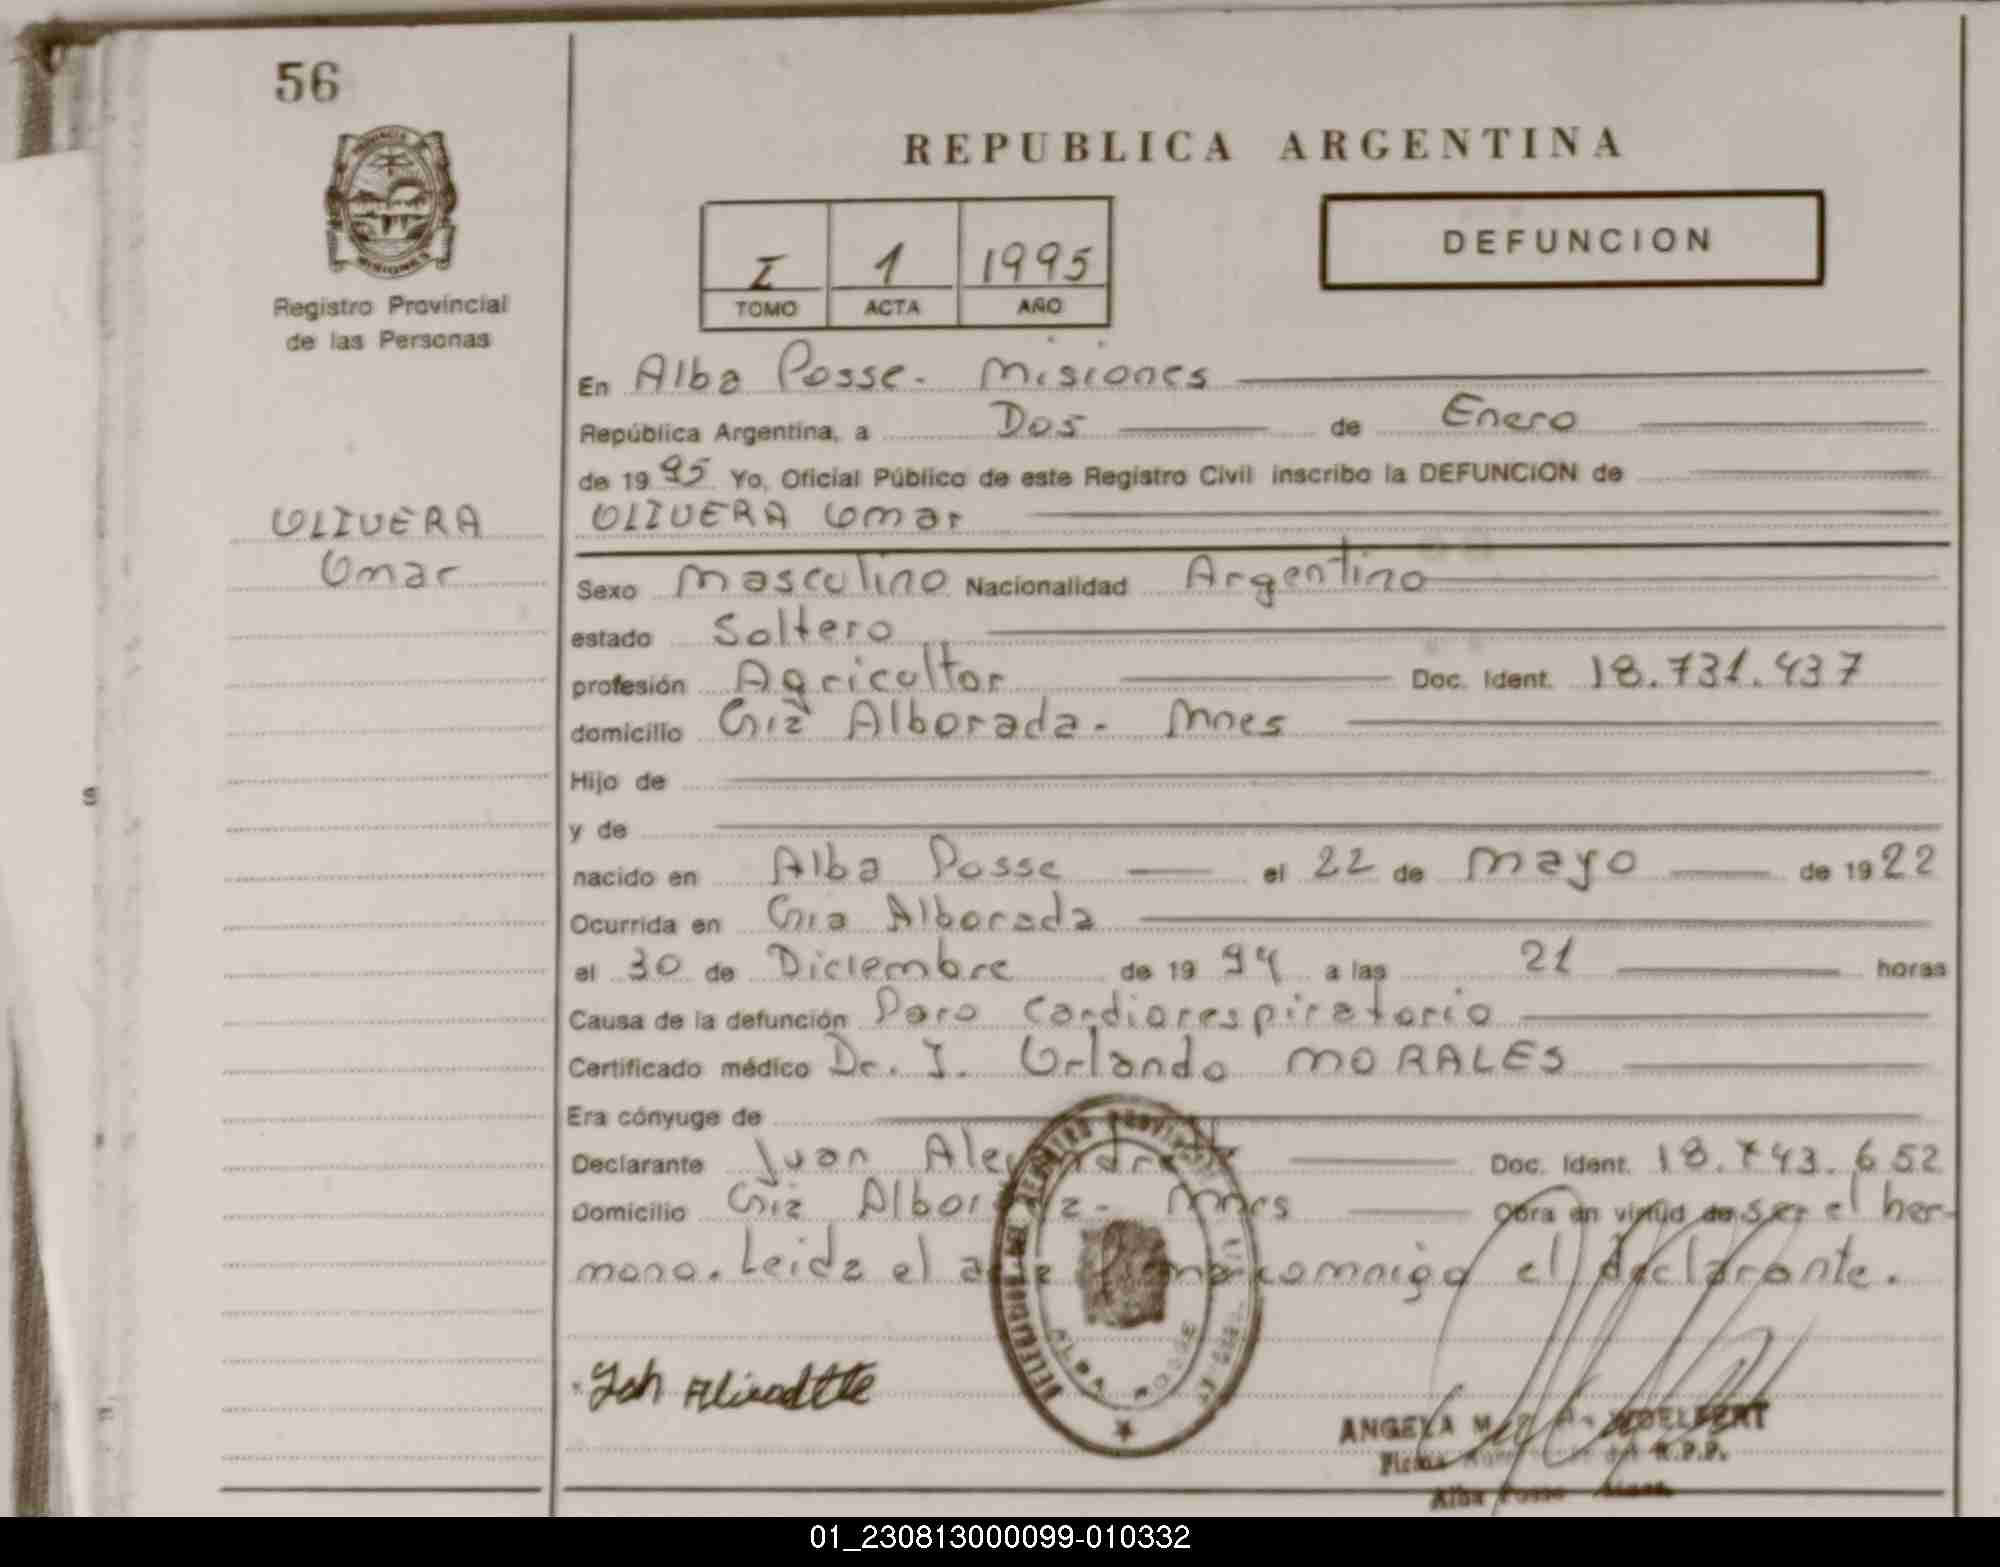 56
REPUBLICA ARGENTINA
I 1 1995
TOMO ACTA AÑO
DEFUNCION
Registro Provincial
de las Personas
En Alba Posse. Misiones
República Argentina, a Dos de Enero
de 1995 Yo, Oficial Público de este Registro Civil inscribo la DEFUNCION de
OLIVERA Omar
OLIVERA
Omar
Sexo Masculino Nacionalidad Argentino
estado Soltero
profesión Agricultor Doc. Ident. 18.731.437
domicilio Cnia Alborada. Mnes
Hijo de
y de
nacido en Alba Posse el 22 de Mayo de 1922
Ocurrida en Cnia Alborada
el 30 de Diciembre de 1994 a las 21 horas
Causa de la defunción Paro Cardiorespiratorio
Certificado médico Dr. J. Orlando MORALES
Era cónyuge de
Declarante Juan Doc. Ident. 18.743.652
Domicilio Cnia Alborada. Mnes Obra en virtud de ser el her-
mano. Leida el acta firma conmigo el declarante.
ALBA POSSE
ANGELA M.
Firma R.P.P.
Alba Posse Mnes.
01_230813000099-010332